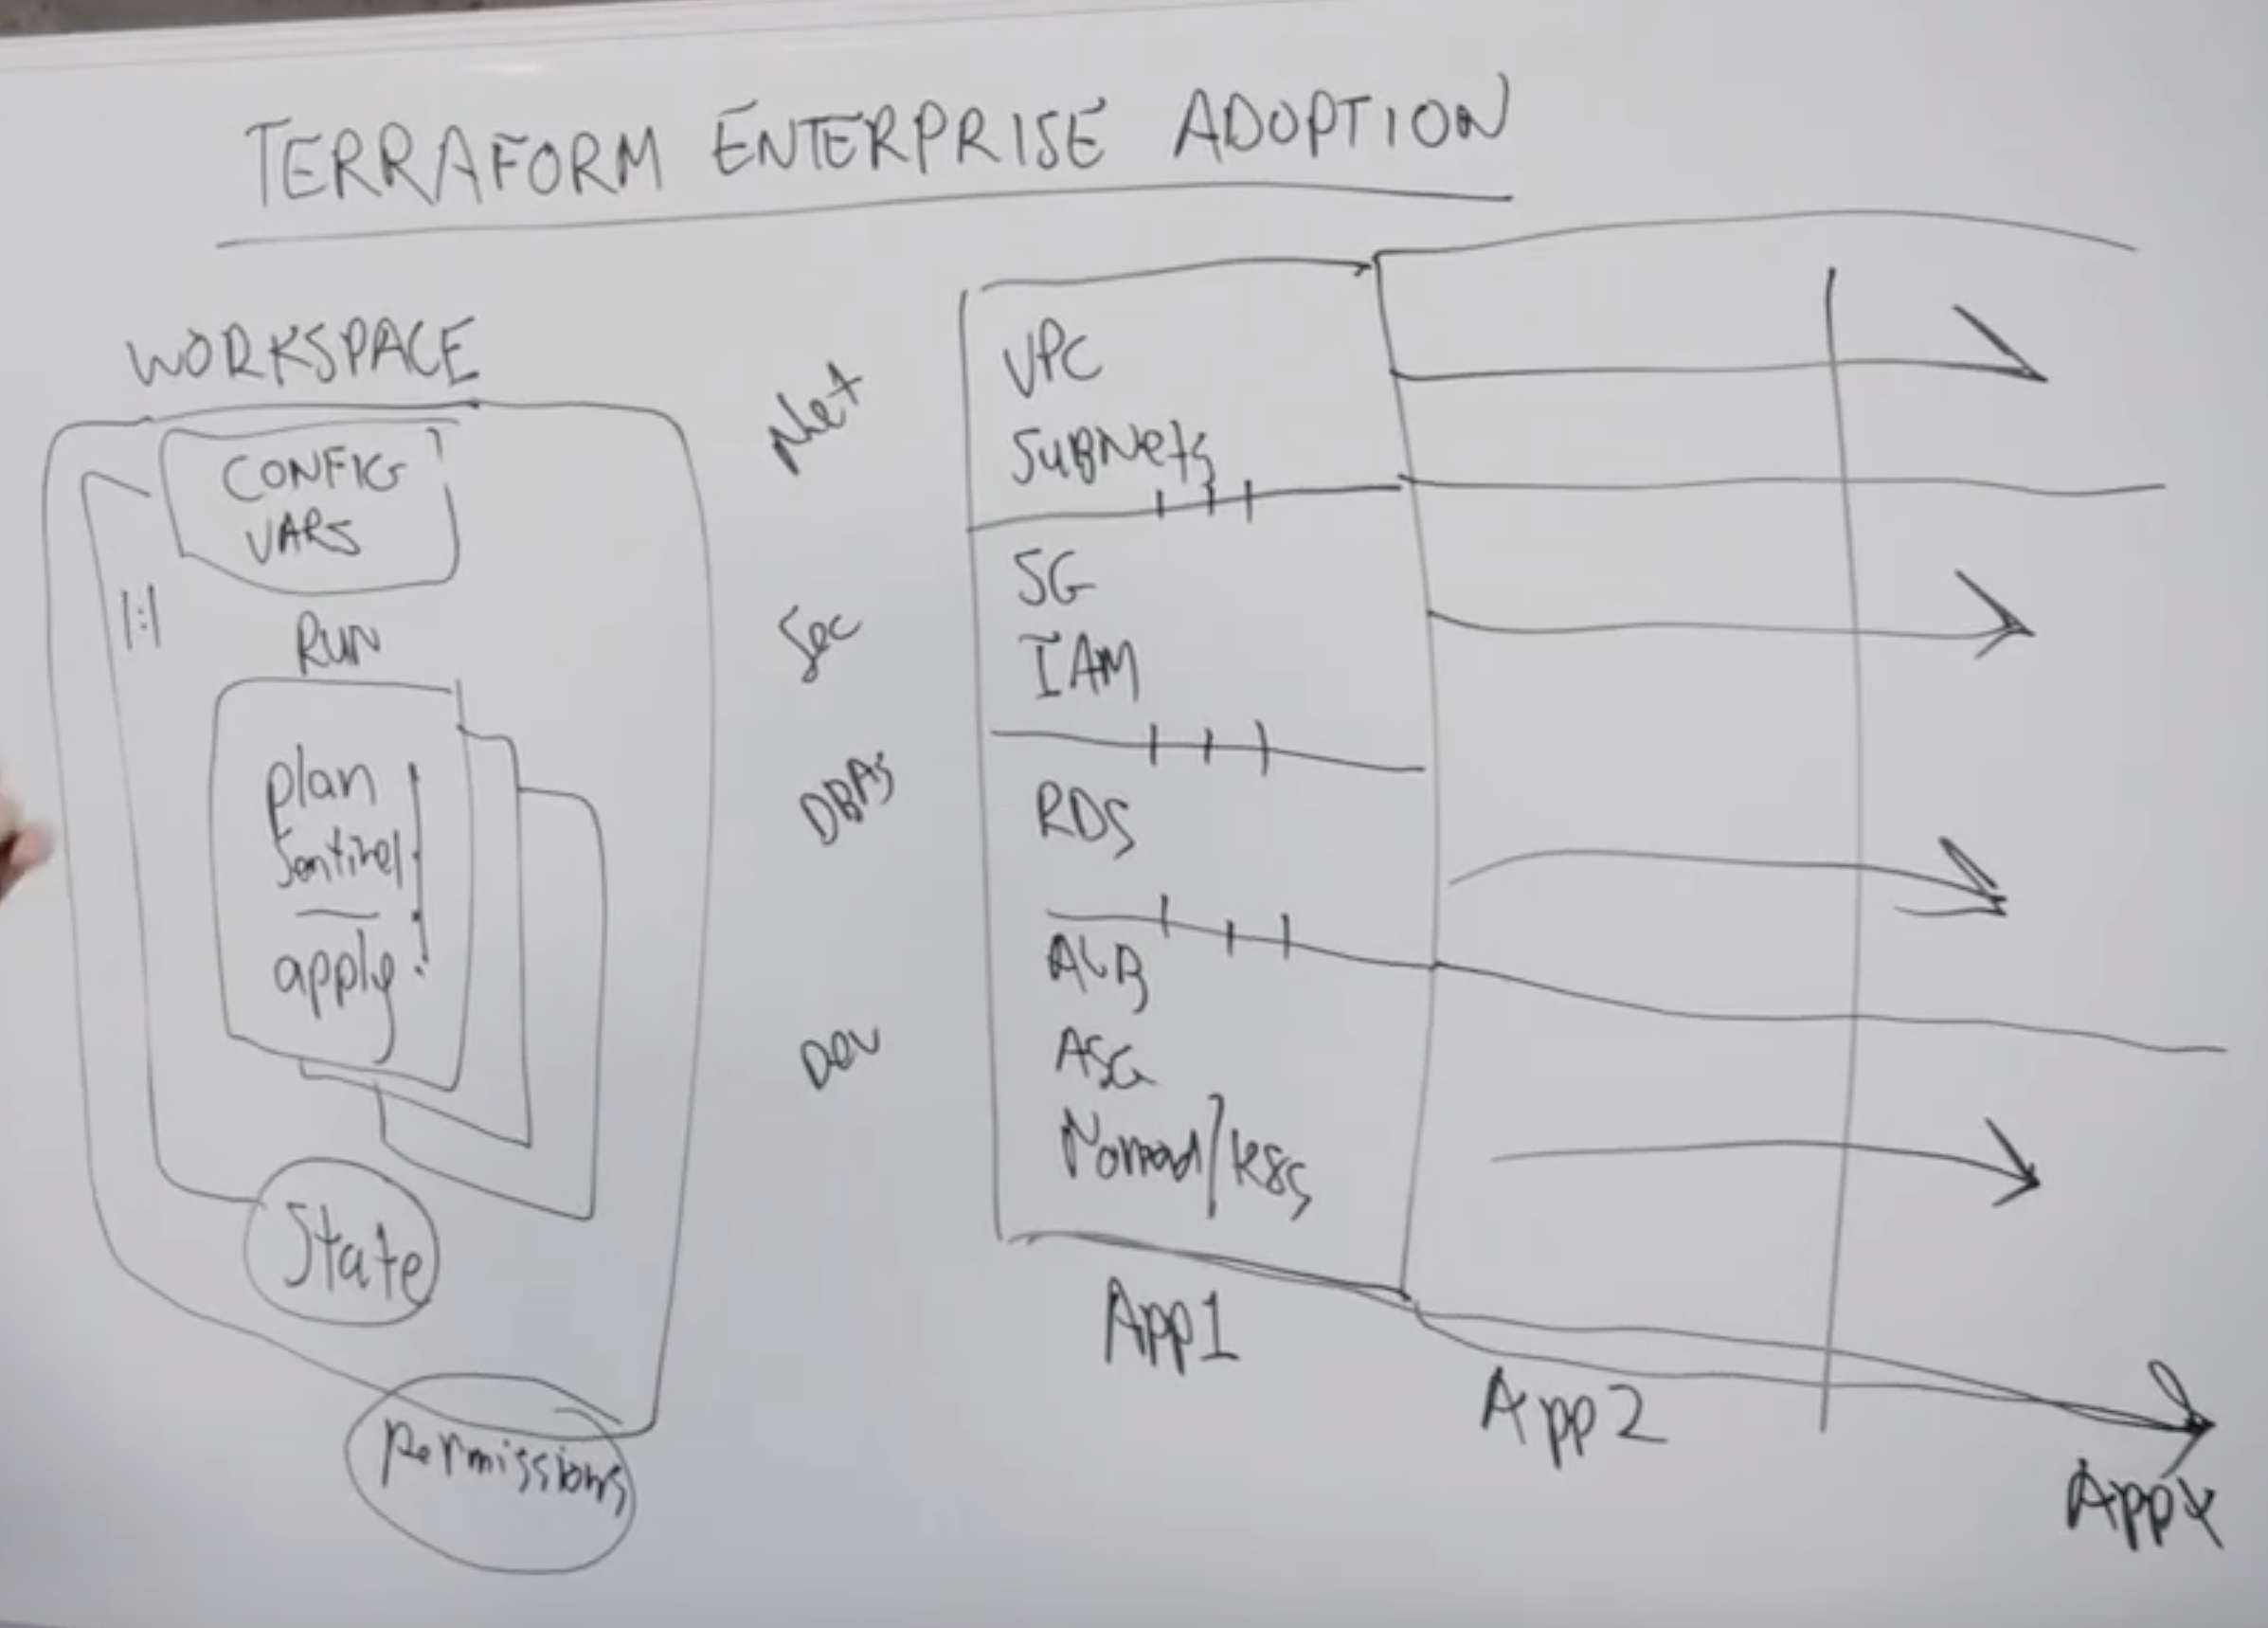 TERRAFORM ENTERPRISE ADOPTION
WORKSPACE
CONFIG
VARS
1:1
RUN
plan
Sentinel
apply
State
permissions
Net
Sec
DBAs
Dev
VPC
SUBNets
SG
IAM
RDS
ALB
ASG
Nomad/k8s
App1
App2